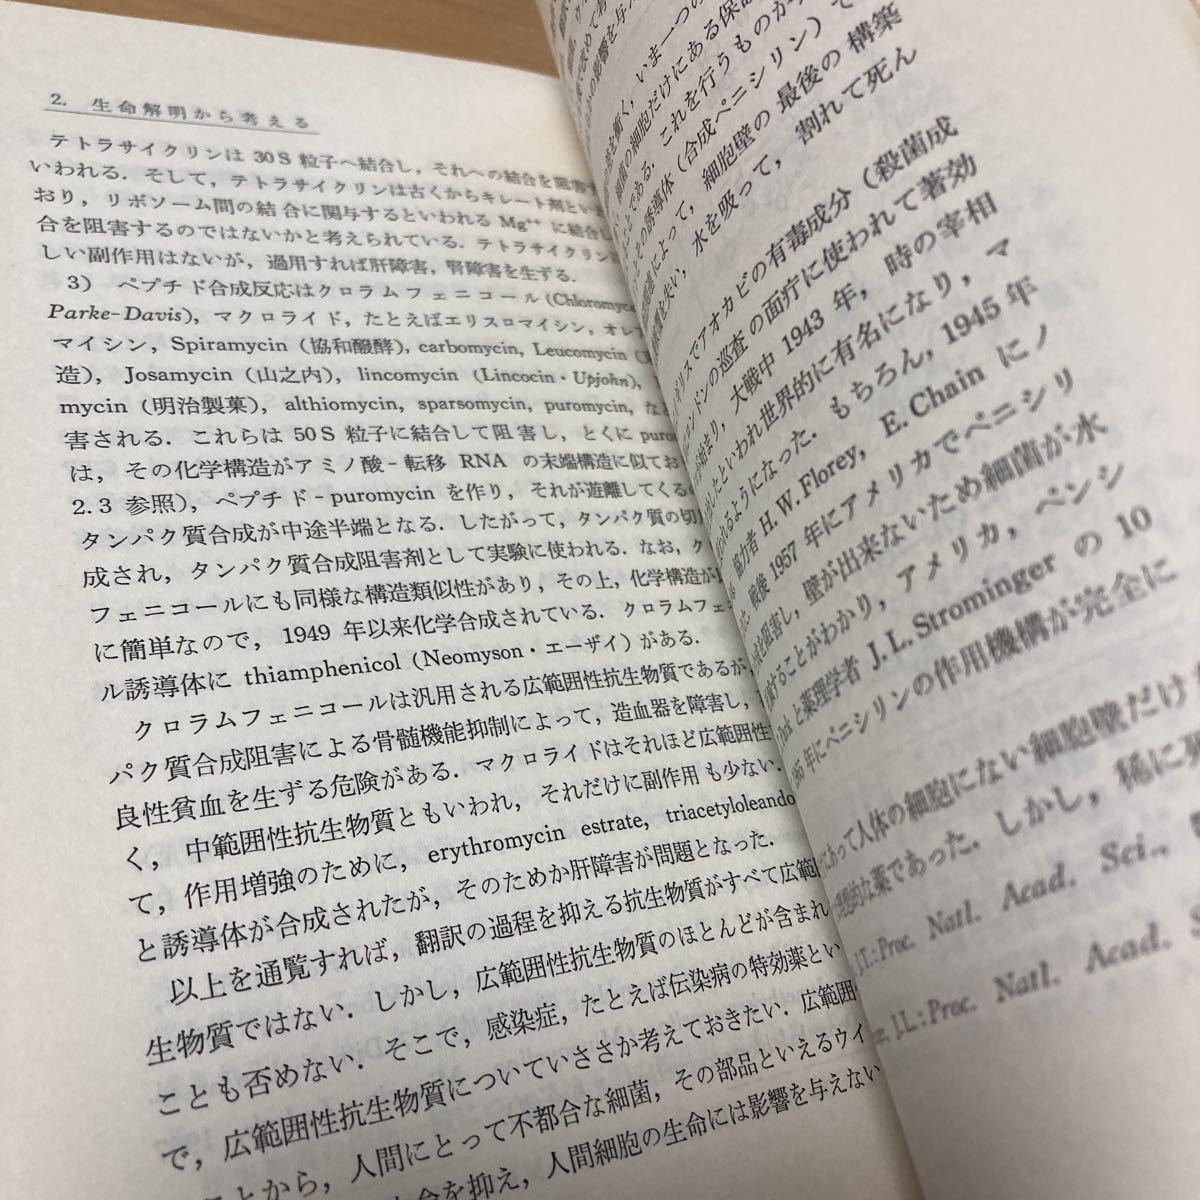 2. 生命解明から考える
テトラサイクリンは 30S 粒子へ結合し，それへの結合を阻害す
いわれる．そして，テトラサイクリンは古くからキレート剤といわ
おり，リボソーム間の結合に関与するといわれる Mg⁺⁺ に結合し
合を阻害するのではないかと考えられている．テトラサイクリン
しい副作用はないが，過用すれば肝障害，腎障害を生ずる．
3) ペプチド合成反応はクロラムフェニコール（Chloromyce
Parke-Davis），マクロライド，たとえばエリスロマイシン，オレ
マイシン，Spiramycin（協和醗酵），carbomycin, Leucomycin（
造），Josamycin（山之内），lincomycin（Lincocin・Upjohn），
mycin（明治製菓），althiomycin, sparsomycin, puromycin, な
害される．これらは 50S 粒子に結合して阻害し，とくに puro
は，その化学構造がアミノ酸-転移 RNA の末端構造に似てお
2.3 参照），ペプチド-puromycin を作り，それが遊離してくる
タンパク質合成が中途半端となる．したがって，タンパク質の切
成され，タンパク質合成阻害剤として実験に使われる．なお，ク
フェニコールにも同様な構造類似性があり，その上，化学構造が
に簡単なので，1949 年以来化学合成されている．クロラムフェ
ル誘導体に thiamphenicol（Neomyson・エーザイ）がある．
クロラムフェニコールは汎用される広範囲性抗生物質であるが，
パク質合成阻害による骨髄機能抑制によって，造血器を障害し，
良性貧血を生ずる危険がある．マクロライドはそれほど広範囲性
く，中範囲性抗生物質ともいわれ，それだけに副作用も少ない．
て，作用増強のために，erythromycin estrate, triacetyloleando
と誘導体が合成されたが，そのためか肝障害が問題となった．
以上を通覧すれば，翻訳の過程を抑える抗生物質がすべて広範囲
生物質ではない．しかし，広範囲性抗生物質のほとんどが含まれ
ことも否めない．そこで，感染症，たとえば伝染病の特効薬とい
で，広範囲性抗生物質についていささか考えておきたい．広範囲
ことから，人間にとって不都合な細菌，その部品といえるウイ
命を抑え，人間細胞の生命には影響を与えない
影響を与え
を衝く，いま一つの
細菌の細胞だけにある保
ことである．これを行うものが
の誘導体（合成ペニシリン）で
によって，細胞壁の最後の構築
を失い，水を吸って，割れて死ん
ギリスでアオカビの有毒成分（殺菌成
ロンドンの巡査の面疔に使われて著効
始まり，大戦中 1943 年，時の宰相
したといわれ世界的に有名になり，マ
れるようになった．もちろん，1945 年
協力者 H.W. Florey, E. Chain にノ
戦後 1957 年にアメリカでペニシリ
を阻害し，壁が出来ないため細菌が水
することがわかり，アメリカ，ペンシ
と薬理学者 J.L. Strominger の 10
年にペニシリンの作用機構が完全に
にあって人体の細胞にない細胞壁だけを
理想的な薬であった．しかし，稀に
J.T.: Proc. Natl. Acad. Sci.,
J.L.: Proc. Natl. Acad. S